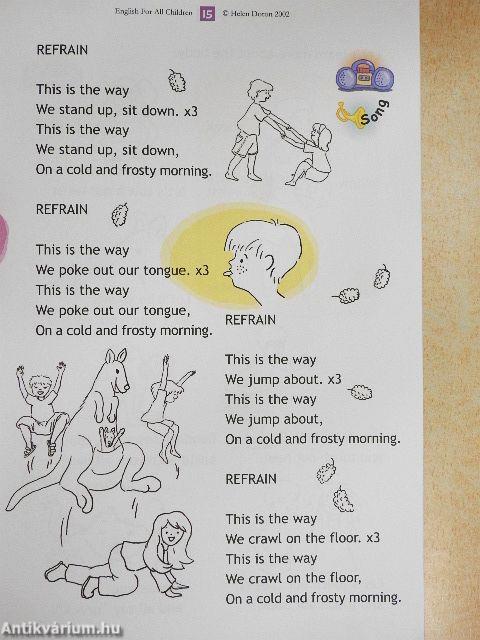 English For All Children 15 © Helen Doron 2002
REFRAIN
This is the way
We stand up, sit down. x3
This is the way
We stand up, sit down,
On a cold and frosty morning.
Song
REFRAIN
This is the way
We poke out our tongue. x3
This is the way
We poke out our tongue,
On a cold and frosty morning.
REFRAIN
This is the way
We jump about. x3
This is the way
We jump about,
On a cold and frosty morning.
REFRAIN
This is the way
We crawl on the floor. x3
This is the way
We crawl on the floor,
On a cold and frosty morning.
Antikvárium.hu